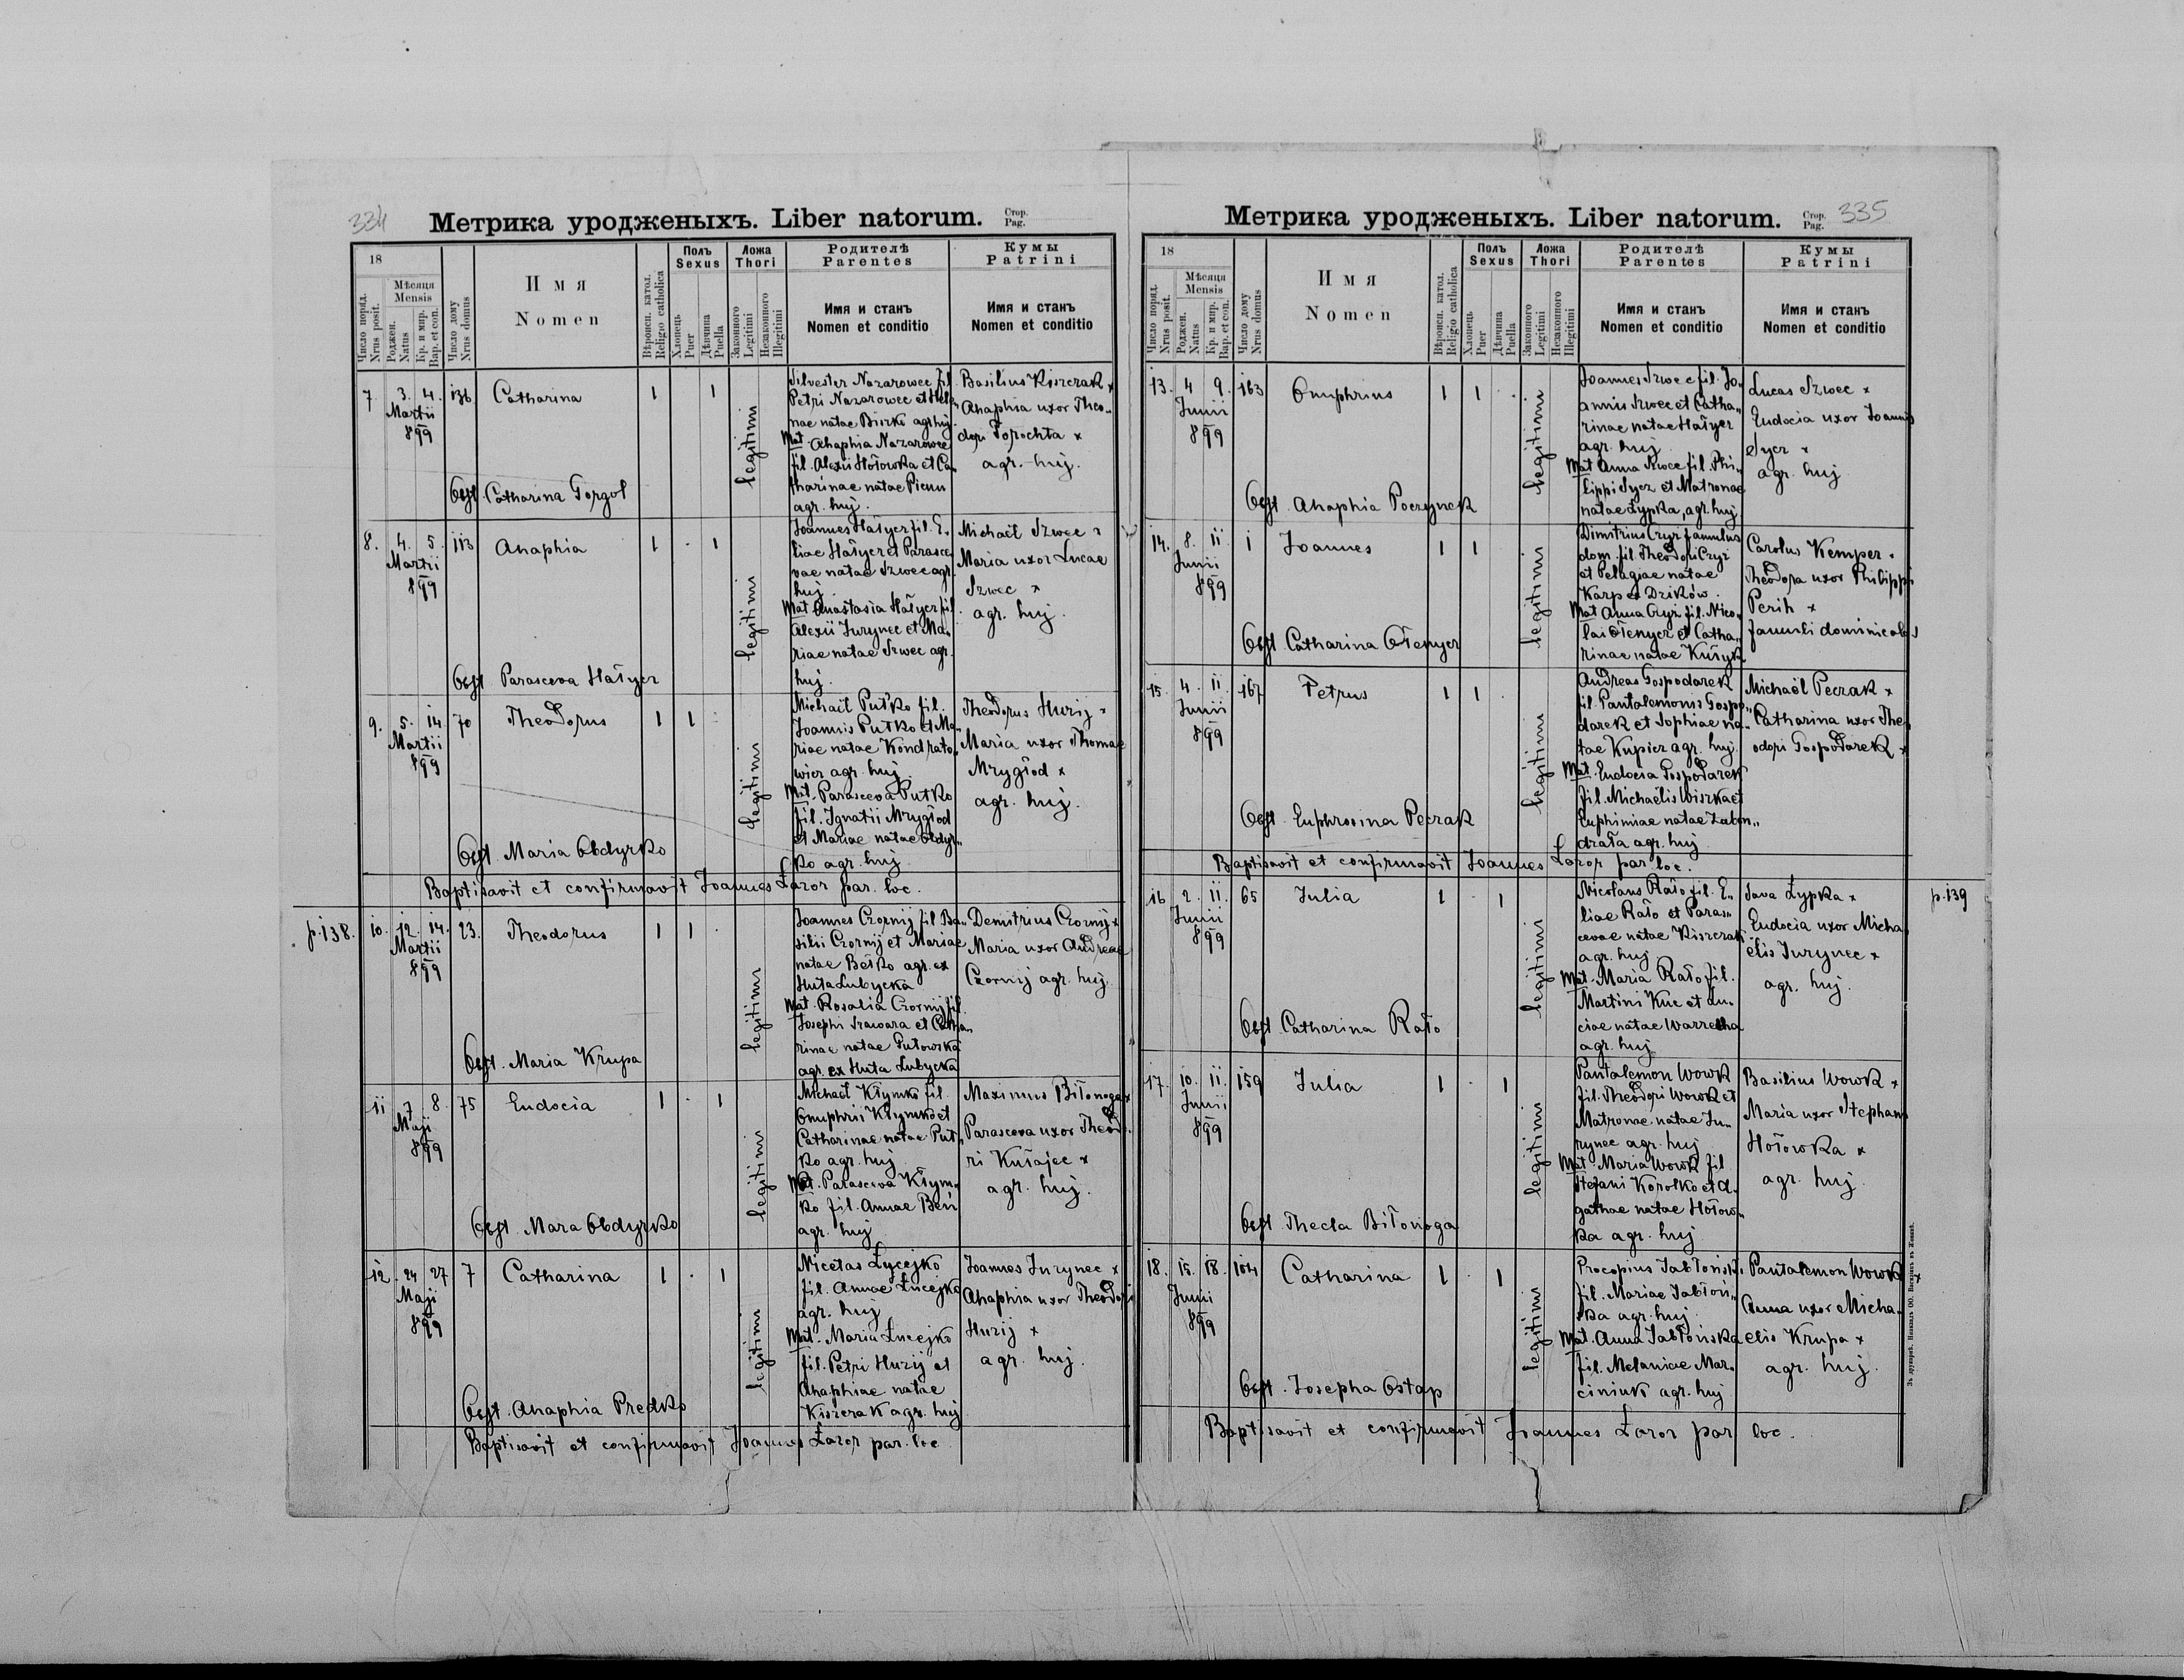 334
Метрика уродженыхъ. Liber natorum. Стор. Pag.
18
Число поряд. Nrus posit.
Мѣсяця Mensis
Роджен. Natus
Кр. и мир. Bap. et con.
Число дому Nrus domus
Имя Nomen
Вѣроисп. катол. Religio catholica
Полъ Sexus
Хлопець Puer
Дѣвчина Puella
Ложа Thori
Законного Legitimi
Незаконного Illegitimi
Родителѣ Parentes
Имя и станъ Nomen et conditio
Кумы Patrini
Имя и станъ Nomen et conditio
7 3. 4. 136 Catharina 1 1
Martii
899
legitimi
Silvester Nazarowec fil
Petri Nazarowec et Hele„
nae natae Birko agr huj.
Mat. Ahaphia Nazarowec
fil. Alexii Hołowka et Ca„
tharinae natae Picun
agr. huj.
Basilius Kiszczak x
Ahaphia uxor Theo„
dori Torochta x
agr. huj.
Obst. Catharina Gorgol
8. 4. 5. 113 Ahaphia 1 . 1
Martii
899
legitimi
Joannes Hałycz fil. E„
liae Hałycz et Parasce„
vae natae Szwec agr.
huj.
Mat Anastasia Hałycz fil
Alexii Jurynec et Ma„
riae natae Szwec agr.
huj.
Michaël Szwec x
Maria uxor Lucae
Szwec x
agr. huj.
Obst Parasceva Hałycz
9. 5. 14 70 Theodorus 1 1
Martii
899
legitimi
Michaël Putko fil.
Joannis Putko et Ma„
riae natae Kondrato„
wicz agr. huj.
Mat. Parasceva Putko
fil. Ignatii Mrygłod
et Mariae natae Obdyr„
ko agr. huj
Theodorus Hurij x
Maria uxor Thomae
Mrygłod x
agr. huj.
Obst Maria Obdyrko
Baptisavit et confirmavit Joannes Łazor par. loc.
p. 138. 10. 12. 14. 23. Theodorus 1 1 .
Martii
899
legitimi
Joannes Czornij fil Ba„
silii Czornij et Mariae
natae Bełko agr. ex
Huta Lubycka
Mat. Rosalia Czornij fil.
Josephi Szawara et Catha„
rinae natae Gutowska
agr. ex Huta Lubycka
Demitrius Czornij x
Maria uxor Andreae
Czornij agr. huj.
Obst. Maria Krupa
11 7 8. 75 Eudocia 1 . 1
Maji
899
legitimi
Michaël Kłymko fil.
Onuphrii Kłymko et
Catharinae natae Put„
ko agr. huj
Mat. Parasceva Kłym„
ko fil. Annae Beń
agr. huj
Maximus Biłonoga x
Parasceva uxor Theodo„
ri Kułajec x
agr. huj.
Obst. Mara Obdyrko
12. 24 27 7 Catharina 1 . 1
Maji
899
legitimi
Nicetas Łycejko
fil. Annae Łucejko
agr. huj
Mat. Maria Łucejko
fil. Petri Hurij et
Ahaphiae natae
Kiszczak agr. huj
Joannes Jurynec x
Ahaphia uxor Theodori
Hurij x
agr. huj.
Obst. Ahaphia Predko
Baptisavit et confirmavit Joannes Łazor par. loc
Метрика уродженыхъ. Liber natorum. Стор. Pag. 335
18
Число поряд. Nrus posit.
Мѣсяця Mensis
Роджен. Natus
Кр. и мир. Bap. et con.
Число дому Nrus domus
Имя Nomen
Вѣроисп. катол. Religio catholica
Полъ Sexus
Хлопець Puer
Дѣвчина Puella
Ложа Thori
Законного Legitimi
Незаконного Illegitimi
Родителѣ Parentes
Имя и станъ Nomen et conditio
Кумы Patrini
Имя и станъ Nomen et conditio
13. 4 9. 163 Onuphrius 1 1 .
Junii
899
legitimi
Joannes Szwec fil. Jo„
annis Szwec et Catha„
rinae natae Hałycz
agr. huj
Mat Anna Szwec fil. Phi„
lippi Sycz et Matronae
natae Łypka, agr. huj
Lucas Szwec x
Eudocia uxor Joannis
Sycz x
agr. huj
Obst. Ahaphia Poczynek
14. 8. 11. 1 Joannes 1 1
Junii
899
legitimi
Dimitrius Czyz famulus
dom. fil Theodori Czyz
et Pelagiae natae
Karp et Dzików.
Mat Anna Czyz fil. Nico„
lai Ołenycz et Catha„
rinae natae Kułyk
Carolus Kemper .
Theodora uxor Philippi
Perih x
famuli dominicales
Obst. Catharina Ołenycz
15. 4 11. 167 Petrus 1 1 .
Junii
899
legitimi
Andreas Gospodarek
fil. Pantalemonis Gospo„
darek et Sophiae na„
tae Kupicz agr. huj.
Mat. Eudocia Gospodarek
fil. Michaëlis Wiszka et
Euphimiae natae Zaben„
drała agr. huj
Michaël Peczak x
Catharina uxor Theo„
odori Gospodarek x
Obst Euphrosina Peczak
Baptisavit et confirmavit Joannes Łazor par loc.
16 2. 11. 65 Julia 1 . 1
Junii
899
legitimi
Nicolaus Rało fil. E„
liae Rało et Paras„
cevae natae Kiszczak
agr. huj
Mat. Maria Rało fil.
Martini Kuc et Lu„
ciae natae Warrecha
agr. huj
Sava Łypka x
Eudocia uxor Micha„
ëlis Jurynec x
agr. huj.
p. 139
Obst. Catharina Rało
17. 10. 11. 159 Julia 1 . 1
Junii
899
legitimi
Pantalemon Wowk
fil. Theodori Wowk et
Matronae natae Ju„
rynec agr. huj
Mat. Maria Wowk fil
Stefani Korolko et A„
gathae natae Hołow„
ka agr. huj
Basilius Wowk x
Maria uxor Stephani
Hołowka x
agr. huj.
Obst. Thecla Biłonoga
18. 15. 18. 104 Catharina 1 . 1
Junii
899
legitimi
Procopius Jabłońsk„
fil. Mariae Jabłoń„
ska agr. huj
Mat. Anna Jabłońska
fil. Melaniae Mar„
ciniuk agr. huj
Pantalemon Wowk x
Anna uxor Micha„
elis Krupa x
agr. huj.
Obst. Josepha Ostap
Baptisavit et confirmavit Joannes Łazor par loc.